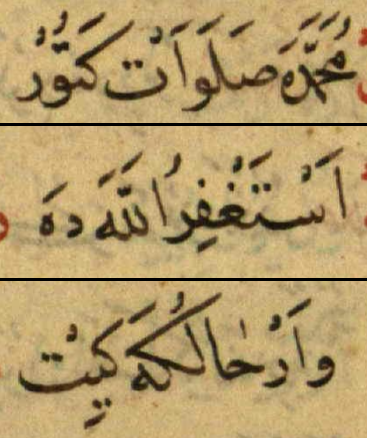 مُحَمَّدَه صَلَوَاتْ كَتُّورُ
اَسْتَغْفِرُ اللّٰهَ دَه
وَاَرْخَالُكَه كَيِتْ